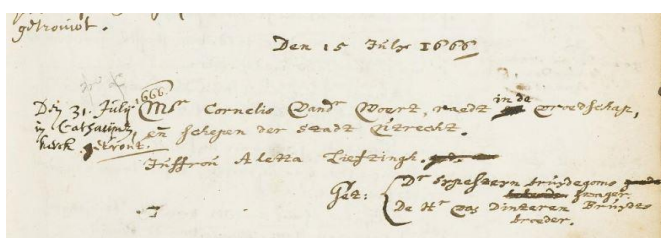 getrouwt.
Den 15 July 1666
Den 31. July 666.
in Catharijne
kerck getrout.
Mr. Cornelio vandr Voort, raedt in de vroetschap,
en schepen der stadt Utrecht.
Juffrou Aletta Lieftingh.
Get: Dr bruydegoms
swager.
De Hr Bruyts
broeder.